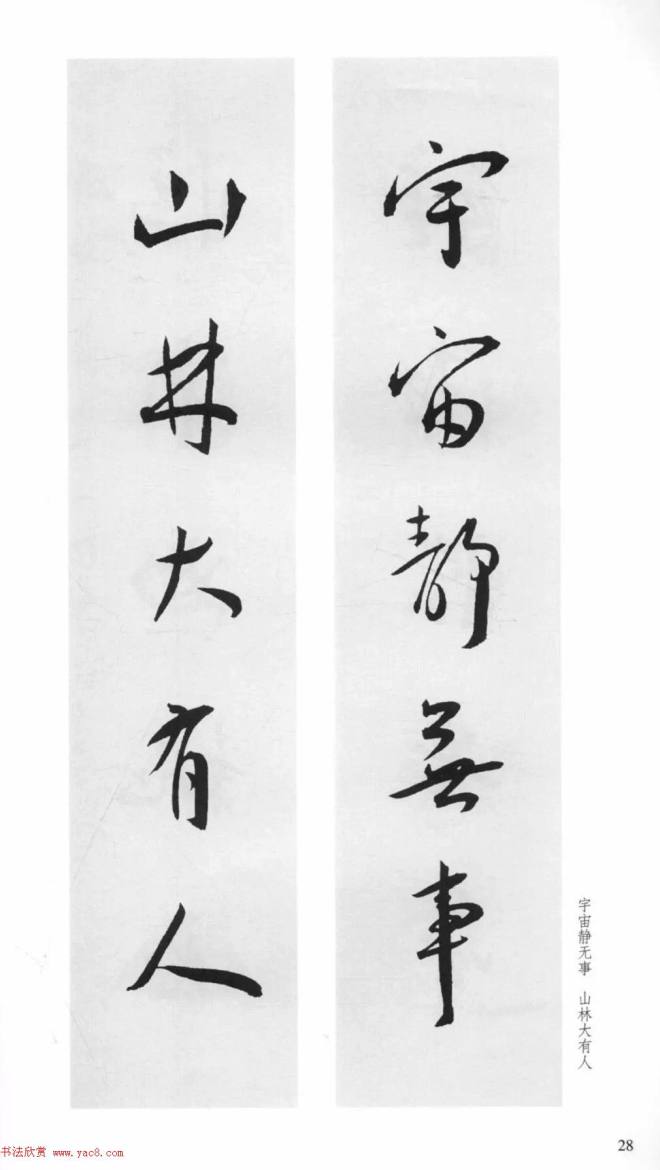 宇宙靜無事
山林大有人
宇宙静无事 山林大有人
28
书法欣赏 www.yac8.com